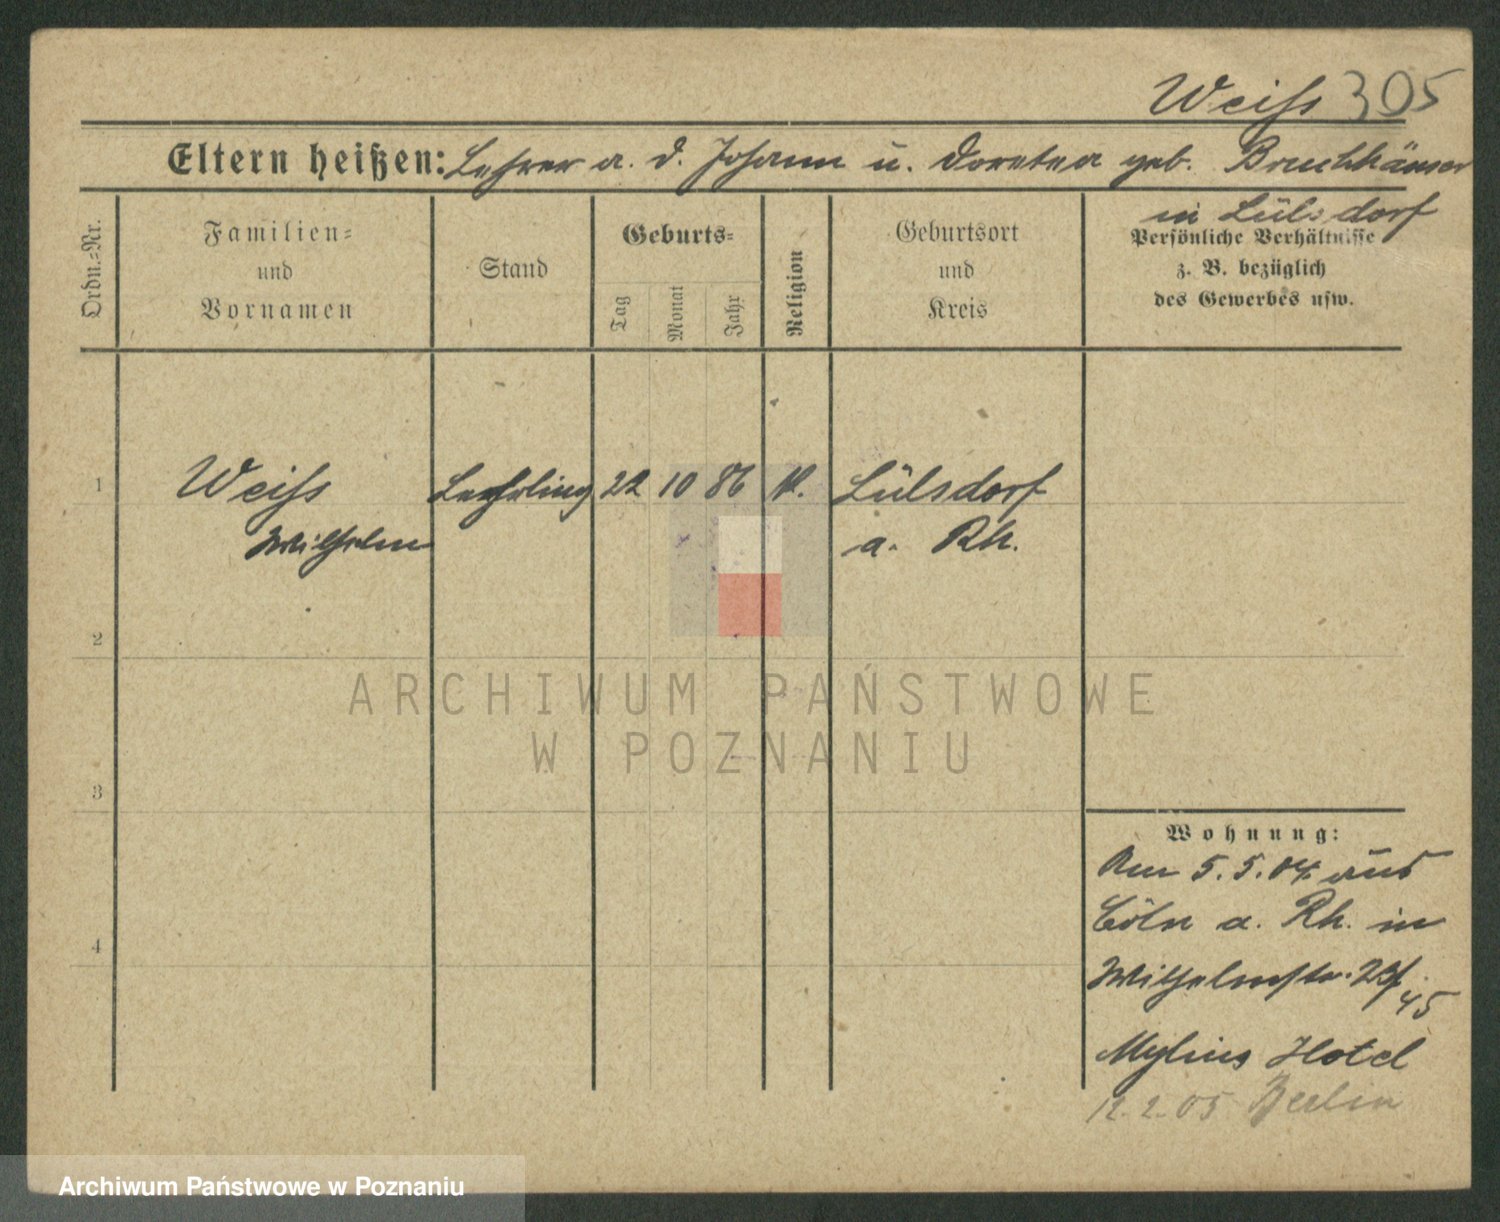 Weiss 305
Eltern heißen: Lehrer a. D. Johann u. Dorotea geb. Bruchhäuser
in Lülsdorf
Ordn.-Nr.
Familien-
und
Vornamen
Stand
Geburts-
Tag
Monat
Jahr
Religion
Geburtsort
und
Kreis
Persönliche Verhältnisse
z. B. bezüglich
des Gewerbes usw.
1 Weiss Lehrling 22 10 86 k. Lülsdorf
Wilhelm a. Rh.
2
3
4
Wohnung:
Am 5.5.04. aus
Cöln a. Rh. in
Wilhelmstr. 23/
45
Mylius Hotel
12.2.05 Berlin
ARCHIWUM PAŃSTWOWE
W POZNANIU
Archiwum Państwowe w Poznaniu